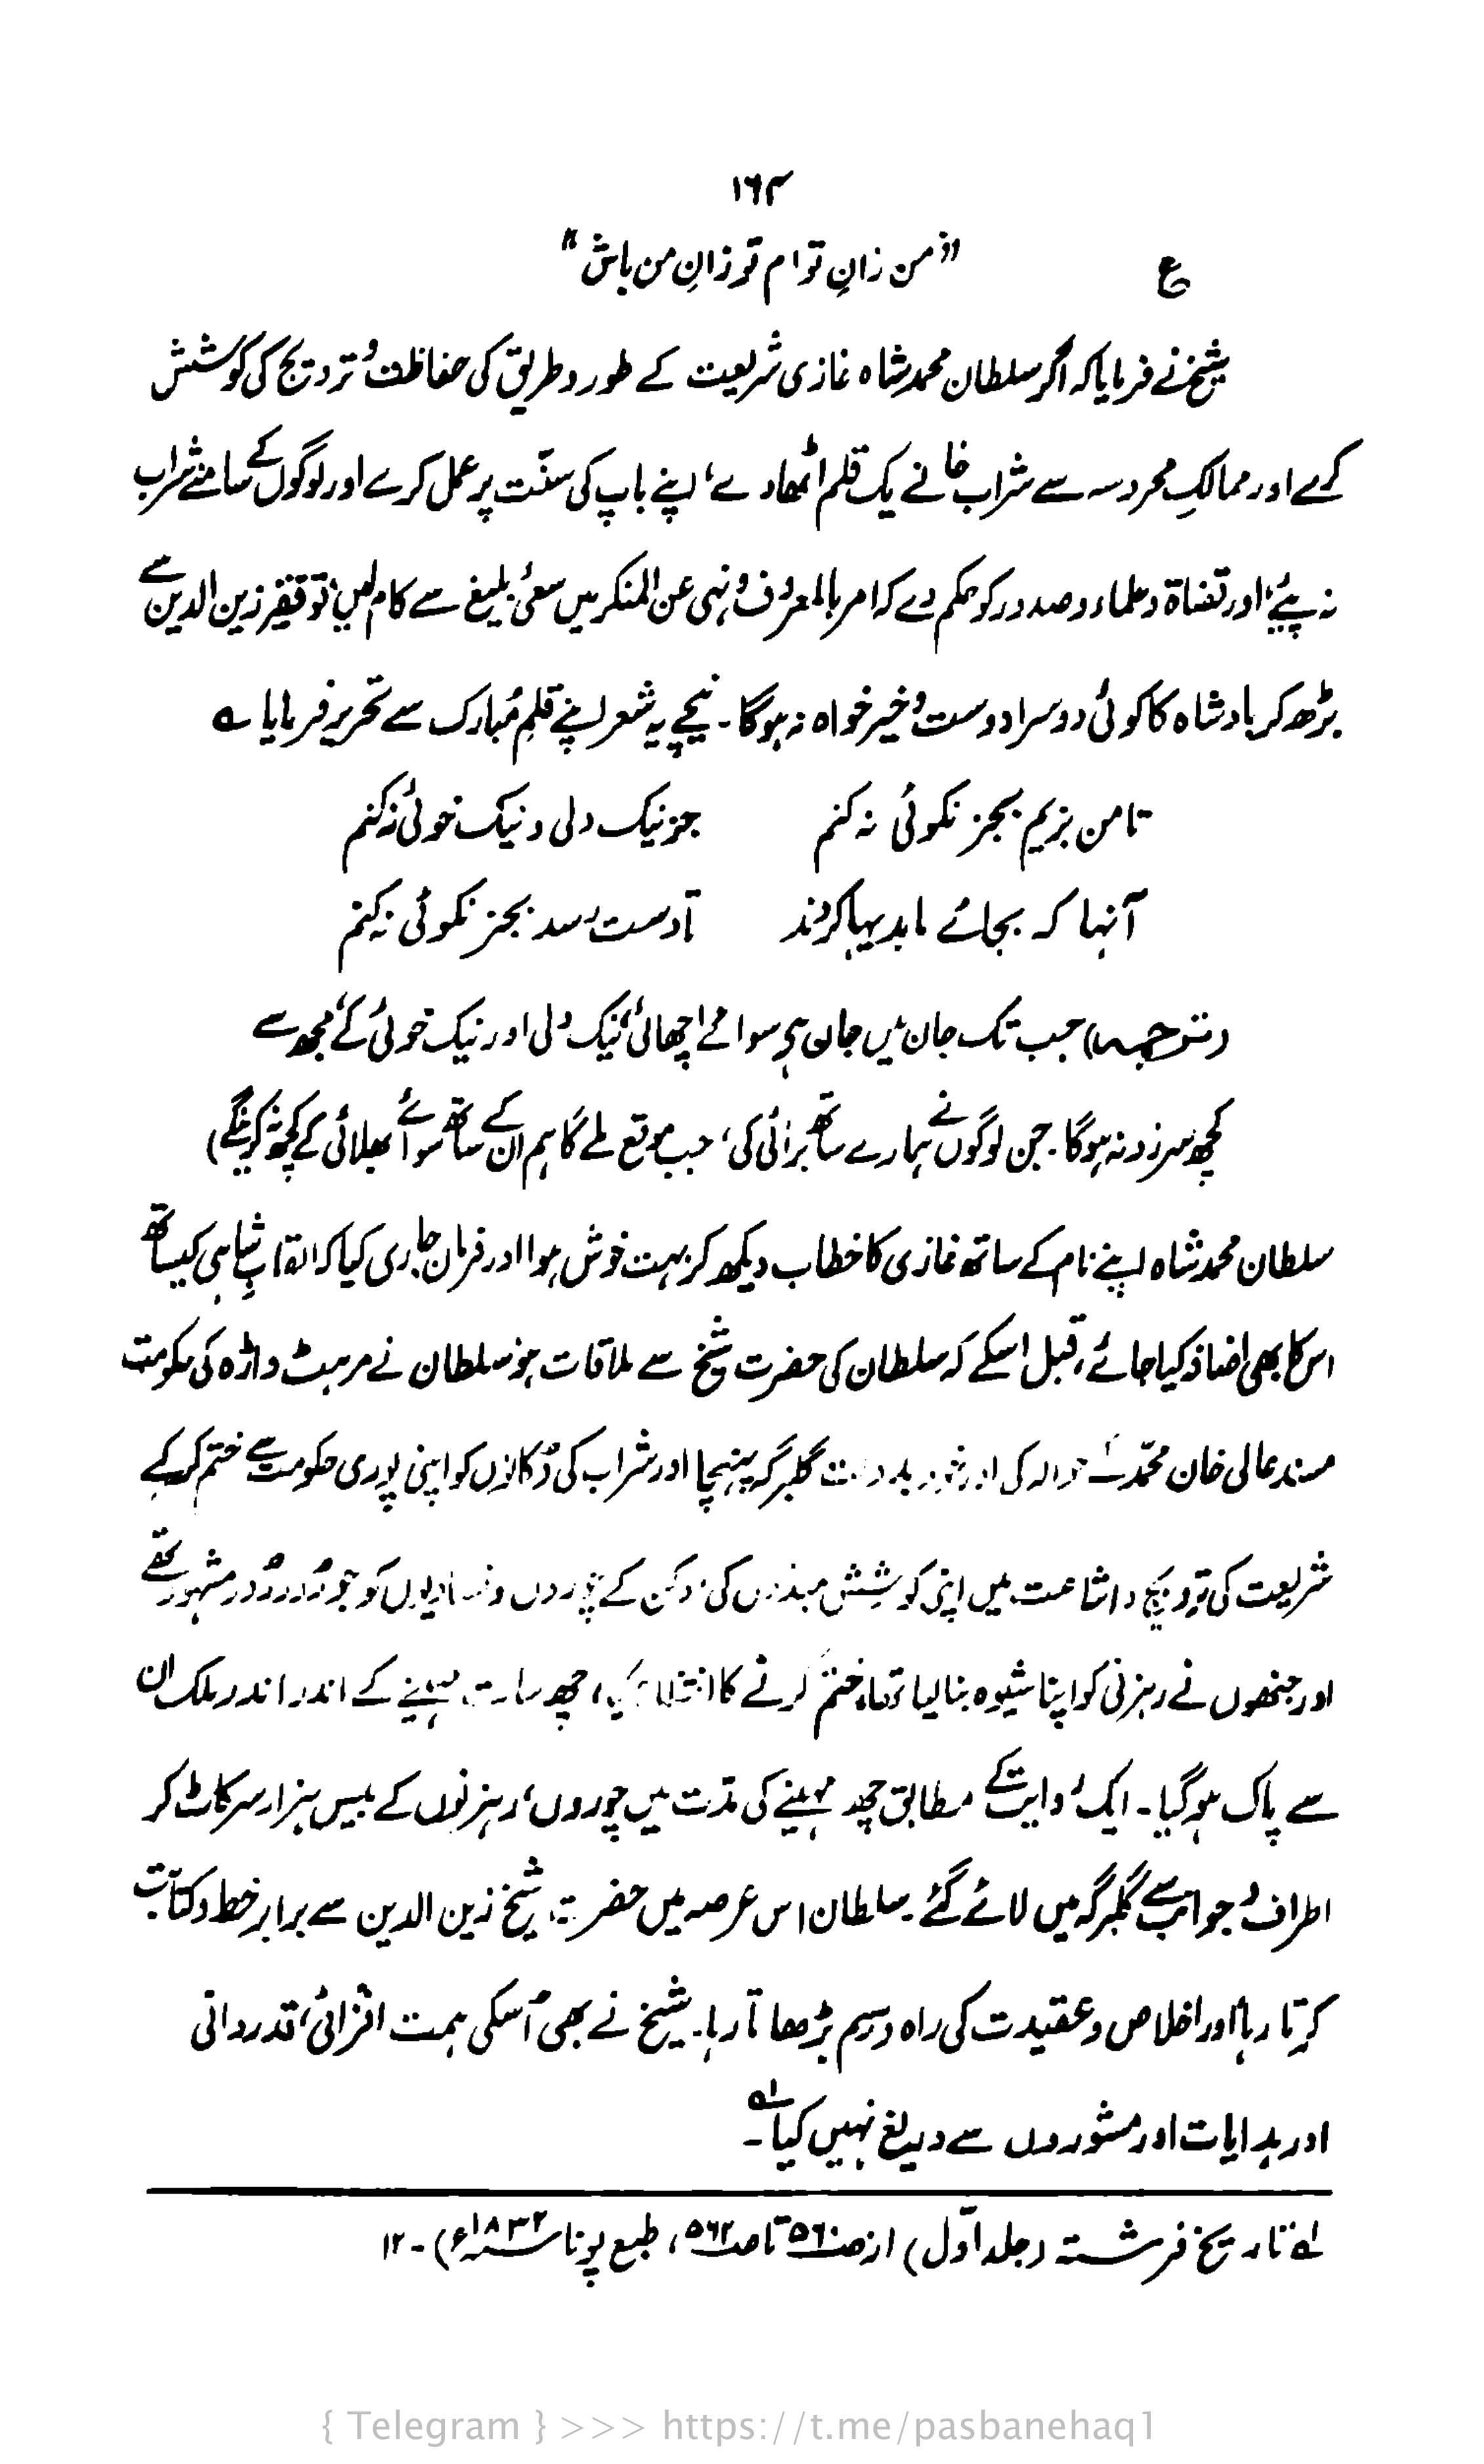 ۱۶۴
ع "من زانِ توام تو زانِ من باش"
شیخ نے فرمایا کہ اگر سلطان محمد شاہ غازی شریعت کے طور و طریق کی حفاظت و ترویج کی کوشش
کرے اور ممالکِ محروسہ سے شراب خانے یک قلم اٹھادے، اپنے باپ کی سنّت پر عمل کرے اور لوگوں کے سامنے شراب
نہ پئے، اور قضاۃ و علماء و صدور کو حکم دے کہ امر بالمعروف و نہی عن المنکر میں سعیٔ بلیغ سے کام لیں، تو فقیر زین الدین سے
بڑھ کر بادشاہ کا کوئی دوسرا دوست و خیر خواہ نہ ہوگا۔ نیچے یہ شعر اپنے قلمِ مُبارک سے تحریر فرمایا ؎
تا من بزیم بجز نکوئی نہ کنم جز نیک دلی و نیک خوئی نہ کنم
آنہا کہ بجائے ما بدیہا کردند تا دست رسد بجز نکوئی نہ کنم
(ترجمہ) جب تک جان میں جان ہے سوائے اچھائی، نیک دلی اور نیک خوئی کے، مجھ سے
کچھ سرزد نہ ہوگا۔ جن لوگوں نے ہمارے ساتھ برائی کی، جب موقع ملے گا ہم ان کے ساتھ سوائے بھلائی کے کچھ نہ کرینگے)
سلطان محمد شاہ اپنے نام کے ساتھ غازی کا خطاب دیکھ کر بہت خوش ہوا اور فرمان جاری کیا کہ القابِ شاہی کیساتھ
اس کا بھی اضافہ کیا جائے، قبل اسکے کہ سلطان کی حضرت شیخ سے ملاقات ہو سلطان نے مرہٹ واڑہ کی حکومت
مسند عالی خان محمد کے حوالہ کی اور گلبرگہ پہنچا اور شراب کی دُکانوں کو اپنی پوری حکومت سے ختم کر کے
شریعت کی ترویج و اشاعت میں اپنی کوشِش مبذول کی، دکن کے چوروں و فسادیوں کو جو دُور دُور مشہور تھے
اور جنھوں نے رہزنی کو اپنا شیوہ بنا لیا تھا، ختم کرنے کا انتظام کیا، چھ سات مہینے کے اندر اندر ملک ان
سے پاک ہو گیا۔ ایک روایت کے مطابق چھ مہینے کی مدّت میں چوروں، رہزنوں کے بیس ہزار سر کاٹ کر
اطراف و جوانب سے گلبرگہ میں لائے گئے۔ سلطان اس عرصہ میں حضرت شیخ زین الدین سے برابر خط و کتابت
کرتا رہا اور اخلاص و عقیدت کی راہ و رسم بڑھاتا رہا۔ شیخ نے بھی اُسکی ہمت افزائی، قدردانی
اور ہدایات اور مشوروں سے دریغ نہیں کیا۔ لہ
لہ تاریخ فرشتہ (جلد اوّل) از ص۵۶۰ تا ص۵۶۲، طبع پونا سنہ ۱۸۳۲ء)۔ ۱۲
{ Telegram } >>> https://t.me/pasbanehaq1